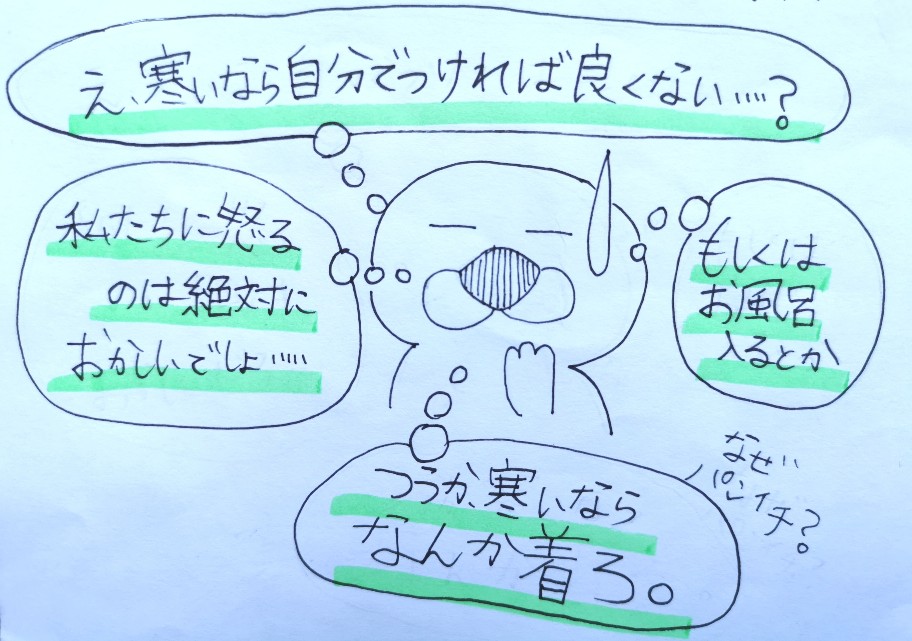 え、寒いなら自分でつければ良くない....?
私たちに怒る
のは絶対に
おかしいでしょ.....
もしくは
お風呂
入るとか
つうか、寒いなら
なんか着ろ。
なぜ
パンイチ?